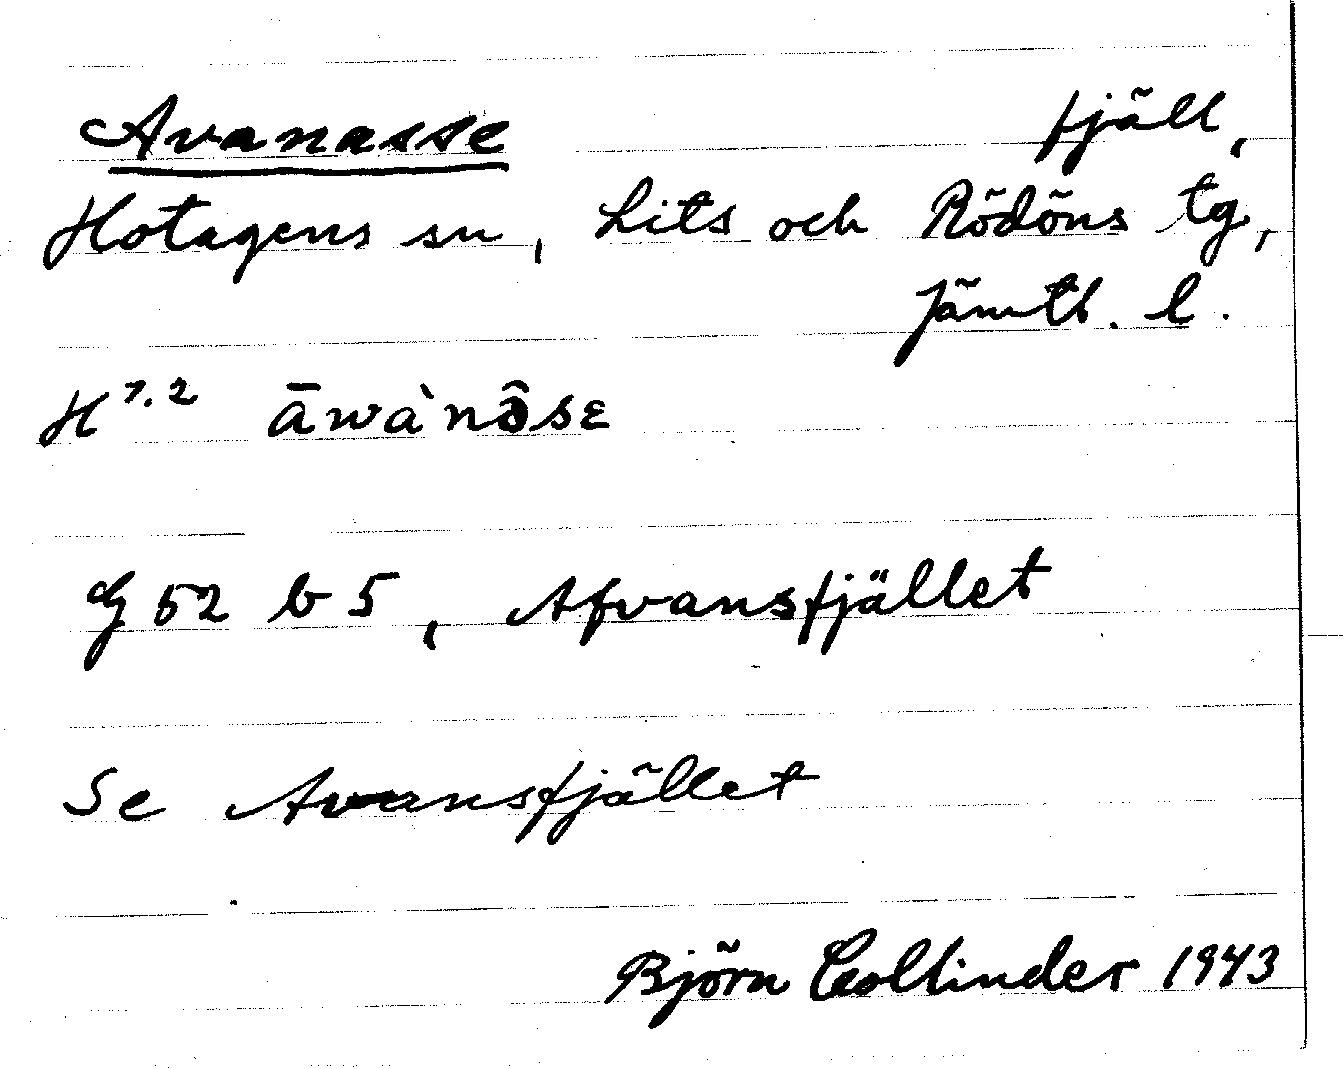 Avanasse fjäll,
Hotagens sn, Lits och Rödöns tg,
Jämtl. l.
H 7.2 āwànô̄sε
G 52 b 5, Afvansfjället
Se Avansfjället
Björn Collinder 1943